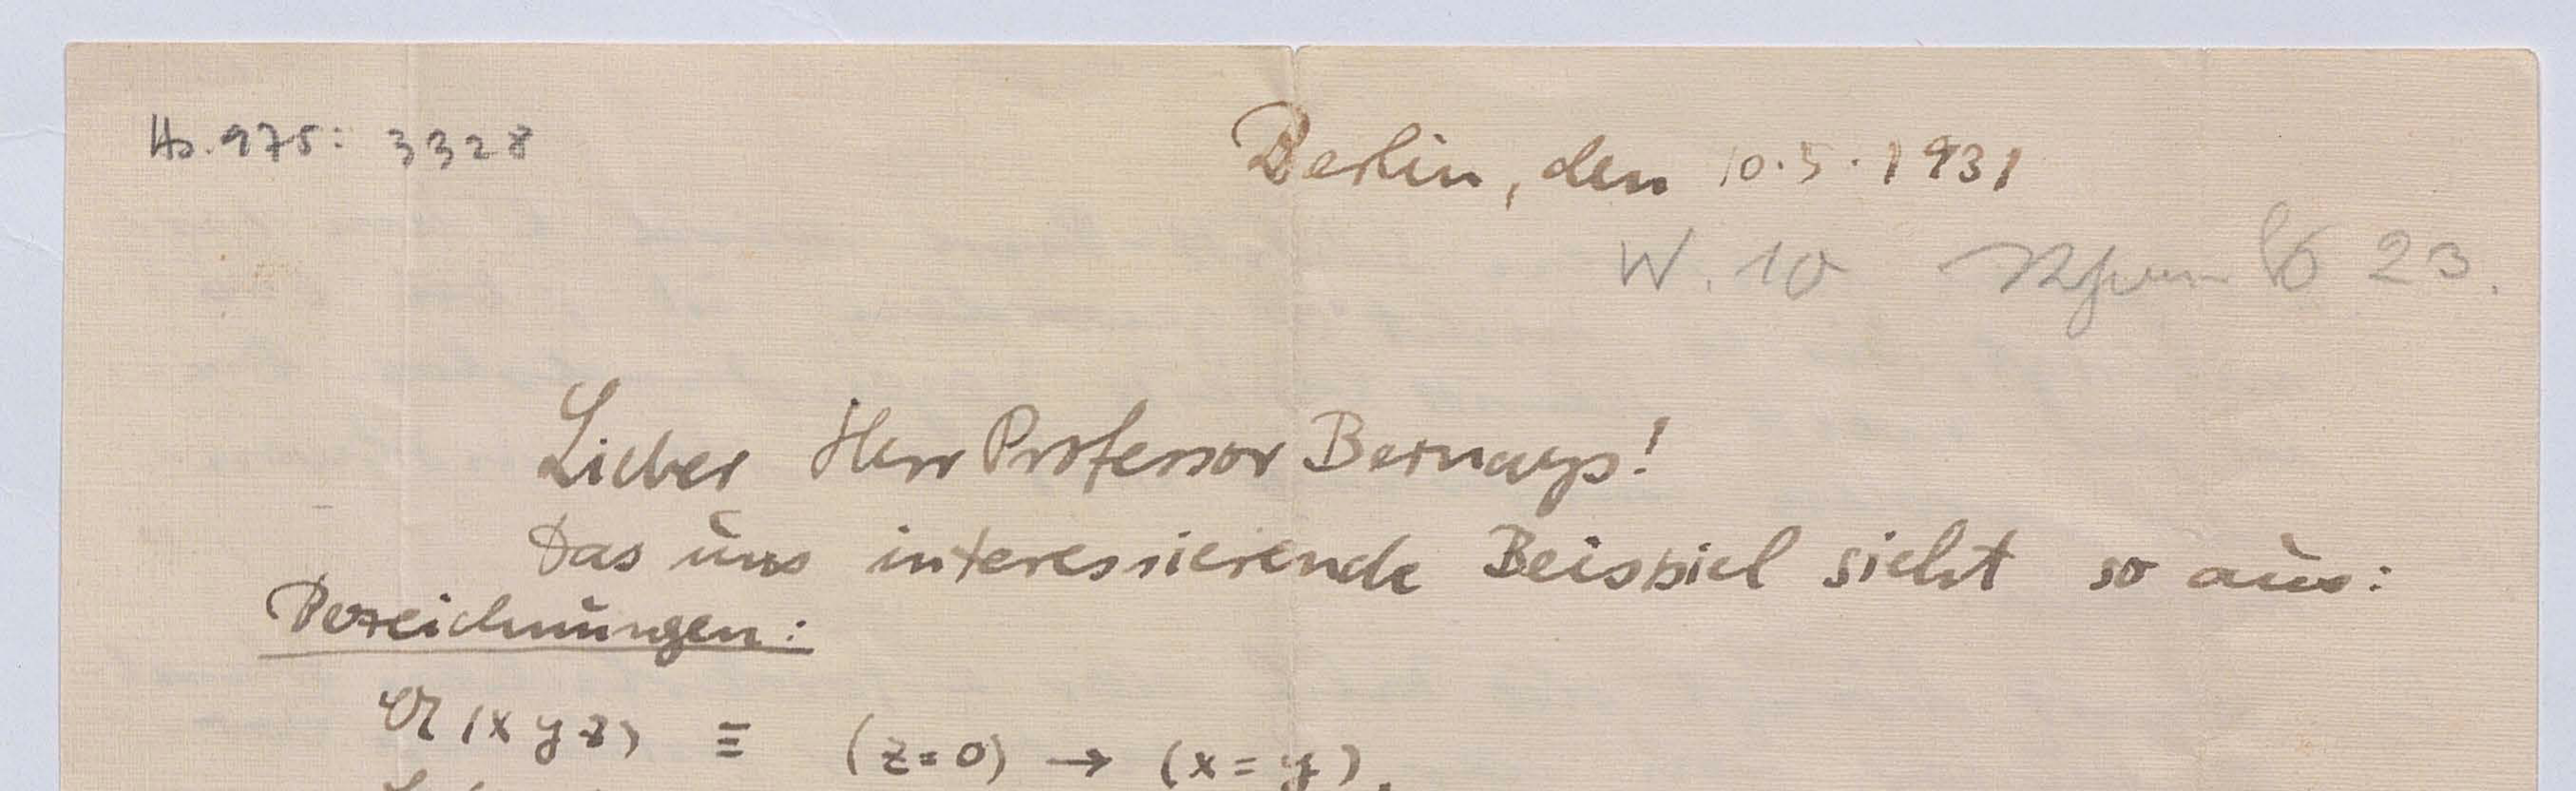 Hs. 975: 3328
Berlin, den 10.5.1931
W. 10 23.
Lieber Herr Professor Bernays!
Das uns interessierende Beispiel sieht so aus:
Bezeichnungen:
𝔄(x y z) ≡ (z=0) → (x=y).